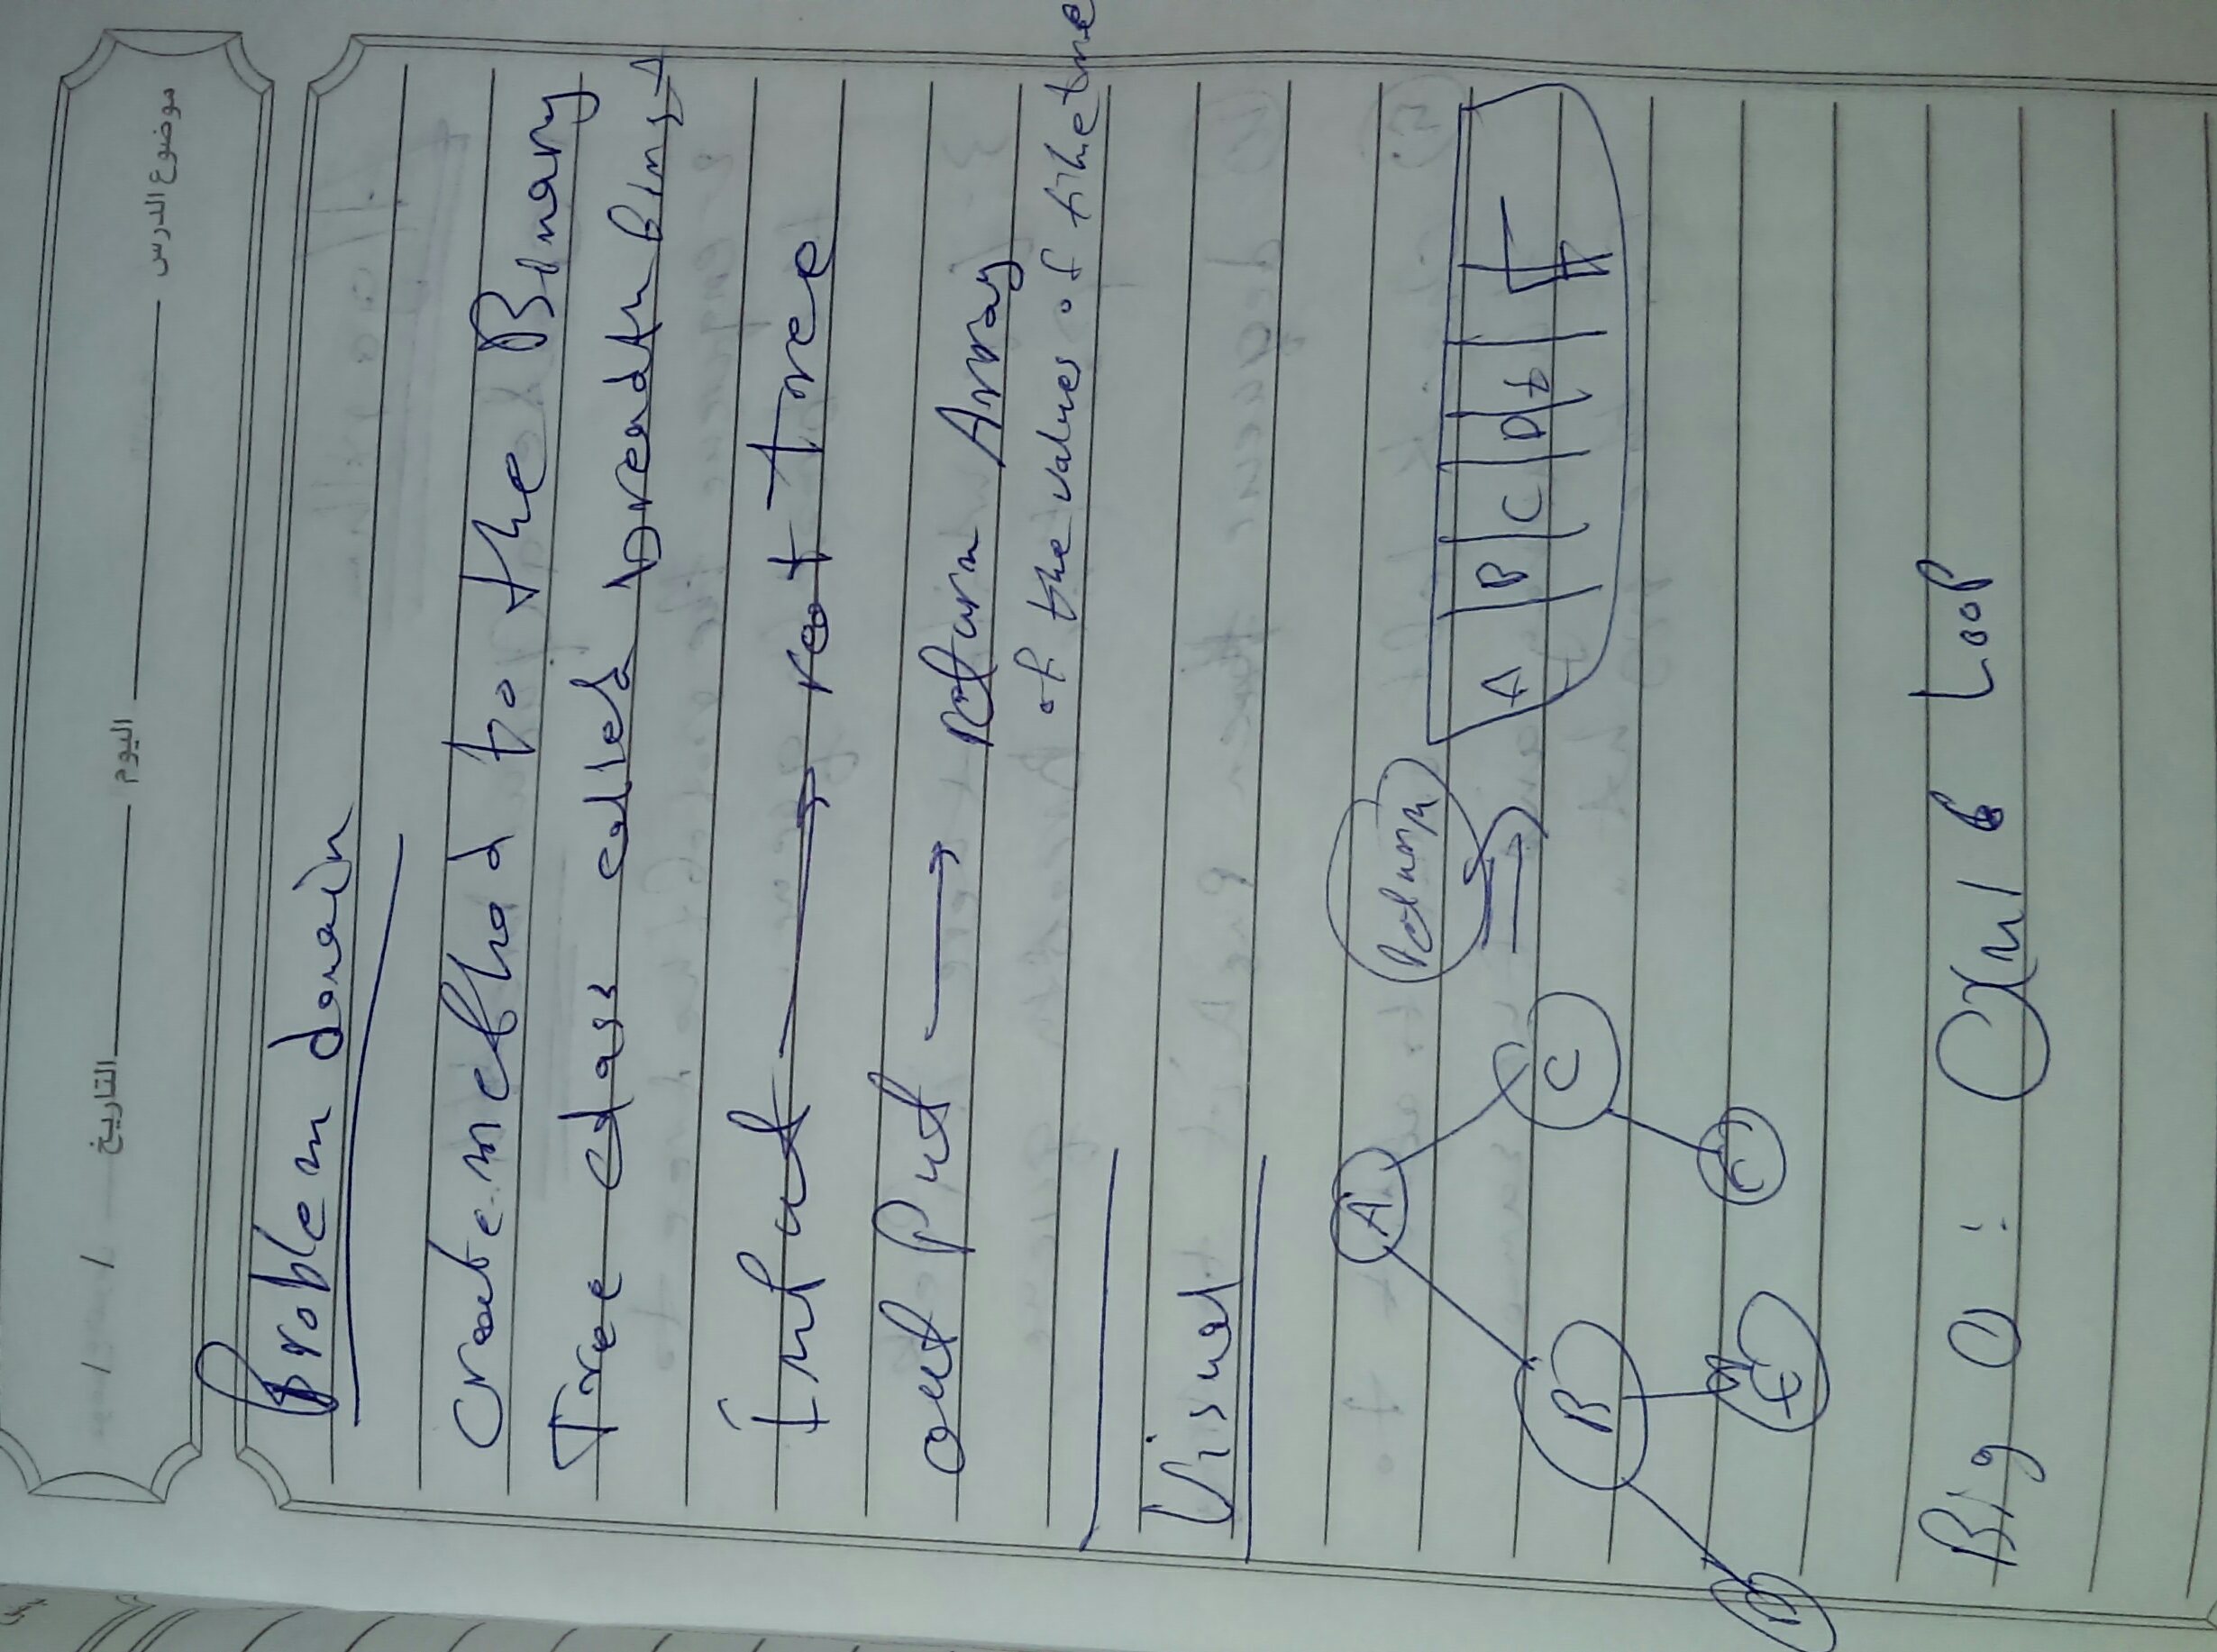 موضوع الدرس اليوم التاريخ
Problem domain
Create method to the Binary
Tree class called breadth first
Input → root Tree
out Put → return Array
of the values of the tree
Visual
A
Return
B C
A B C D
D
Big O: O(n) Loop